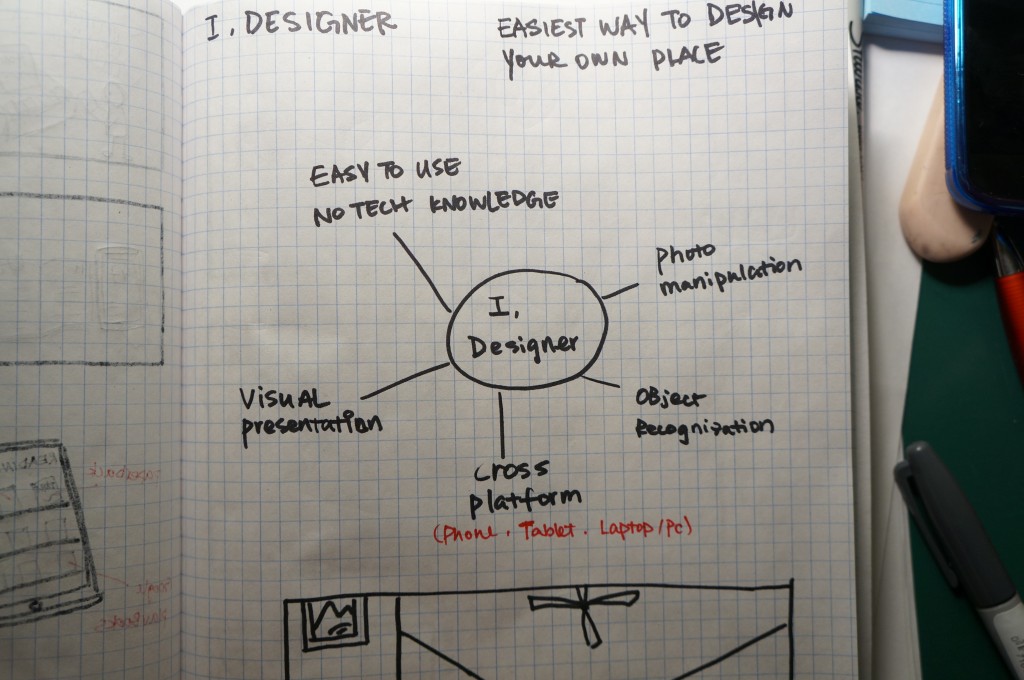 I, DESIGNER
EASIEST WAY TO DESIGN
YOUR OWN PLACE
EASY TO USE
NO TECH KNOWLEDGE
photo
manipulation
I,
Designer
VISUAL
presentation
OBject
Recognization
cross
platform
(Phone, Tablet. Laptop/Pc)